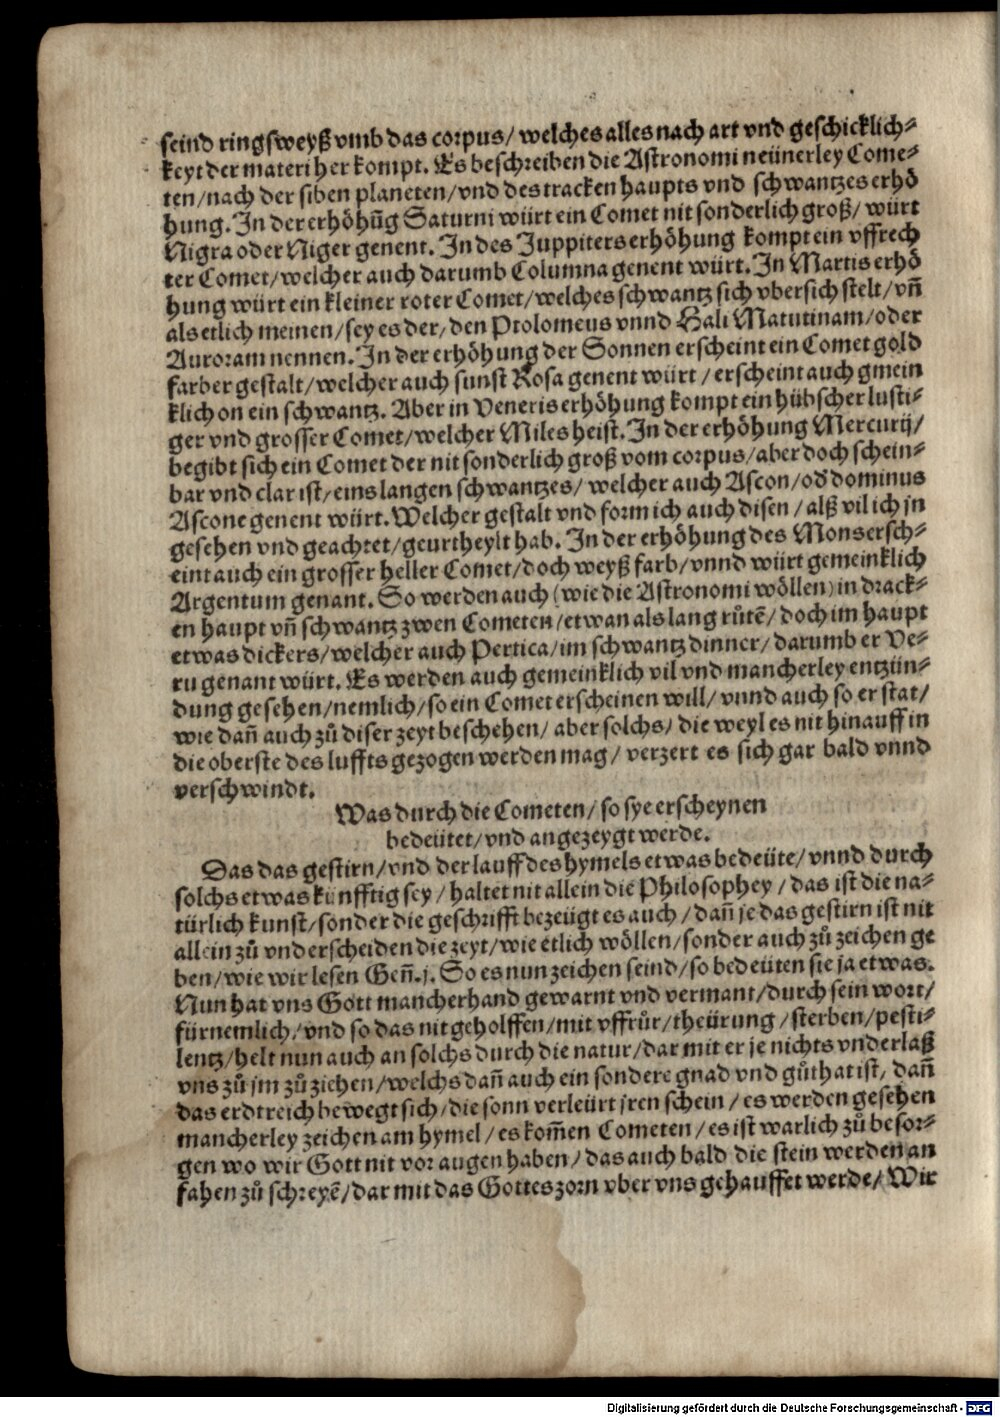 seind ringsweyß vmb das corpus/ welches alles nach art vnd geschicklich⸗
keyt der materi her kompt. Es beschreiben die Astronomi neünerley Come⸗
ten/nach der siben planeten/vnd des tracken haupts vnd schwantzes erhö
hung. In der erhöhūg Saturni würt ein Comet nit sonderlich groß/ würt
Nigra oder Niger genent. In des Juppiters erhöhung kompt ein vffrech
ter Comet/welcher auch darumb Columna genent würt. In Martis erhö
hung würt ein kleiner roter Comet/welches schwantz sich vbersich stelt/vñ
als etlich meinen/sey es der/den Ptolomeus vnnd Hali Matutinam/oder
Auroram nennen. In der erhöhung der Sonnen erscheint ein Comet gold
farber gestalt/welcher auch sunst Rosa genent würt/erscheint auch gmein
klich on ein schwantz. Aber in Veneris erhöhung kompt ein hübscher lusti⸗
ger vnd grosser Comet/welcher Miles heist. In der erhöhung Mercurij/
begibt sich ein Comet der nit sonderlich groß vom corpus/aber doch schein⸗
bar vnd clar ist/eins langen schwantzes/ welcher auch Ascon/od̃ dominus
Ascone genent würt. Welcher gestalt vnd form ich auch disen/alß vil ich jn
gesehen vnd geachtet/geurtheylt hab. In der erhöhung des Mons ersch⸗
eint auch ein grosser heller Comet/doch weyß farb/vnnd würt gemeinklich
Argentum genant. So werden auch (wie die Astronomi wöllen) in drack⸗
en haupt vñ schwantz zwen Cometen/etwan als lang růtē/doch im haupt
etwas dickers/welcher auch Pertica/im schwantz dinner/darumb er Ve⸗
ru genant würt. Es werden auch gemeinklich vil vnd mancherley entzün⸗
dung gesehen/nemlich/so ein Comet erscheinen will/vnnd auch so er stat/
wie dañ auch zů diser zeyt beschehen/aber solchs/die weyl es nit hinauff in
die oberste des luffts gezogen werden mag/ verzert es sich gar bald vnnd
verschwindt.
Was durch die Cometen/so sye erscheynen
bedeütet/vnd angezeygt werde.
Das das gestirn/vnd der lauff des hymels etwas bedeüte/vnnd durch
solchs etwas künfftig sey/haltet nit allein die Philosophey/das ist die na⸗
türlich kunst/sonder die geschrifft bezeügt es auch/dañ je das gestirn ist nit
allein zů vnderscheiden die zeyt/wie etlich wöllen/sonder auch zů zeichen ge
ben/wie wir lesen Geñ.j. So es nun zeichen seind/so bedeüten sie ja etwas.
Nun hat vns Gott mancherhand gewarnt vnd vermant/durch sein wort/
fürnemlich/vnd so das nit geholffen/mit vffrůr/theürung/sterben/pesti⸗
lentz/helt nun auch an solchs durch die natur/dar mit er je nichts vnderlaß
vns zů jm zů ziehen/welchs dañ auch ein sondere gnad vnd gůthat ist/dañ
das erdtreich bewegt sich/die sonn verleürt jren schein/es werden gesehen
mancherley zeichen am hymel/es kom̃en Cometen/es ist warlich zů besor⸗
gen wo wir Gott nit vor augen haben/das auch bald die stein werden an
fahen zů schreyē/dar mit das Gottes zorn vber vns gehauffet werde/Wir
Digitalisierung gefördert durch die Deutsche Forschungsgemeinschaft - DFG